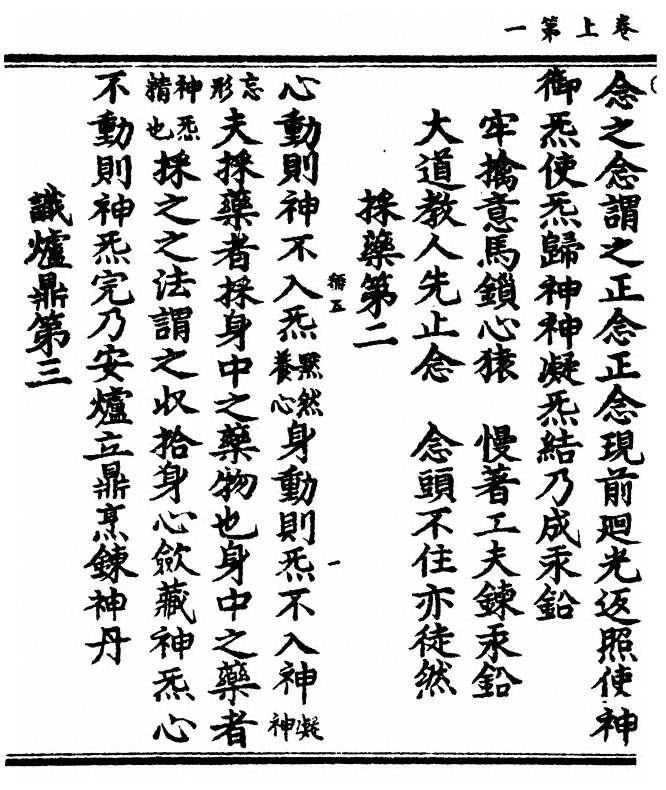 卷上第一
念之念謂之正念正念現前廻光返照使神
御炁使炁歸神神凝炁結乃成汞鉛
牢擒意馬鎖心猿　慢著工夫鍊汞鉛
大道教人先止念　念頭不住亦徒然
採藥第二
心動則神不入炁默然養心身動則炁不入神凝神
忘形夫採藥者採身中之藥物也身中之藥者
神炁精也採之之法謂之收拾身心歛藏神炁心
不動則神炁完乃安爐立鼎烹鍊神丹
識爐鼎第三